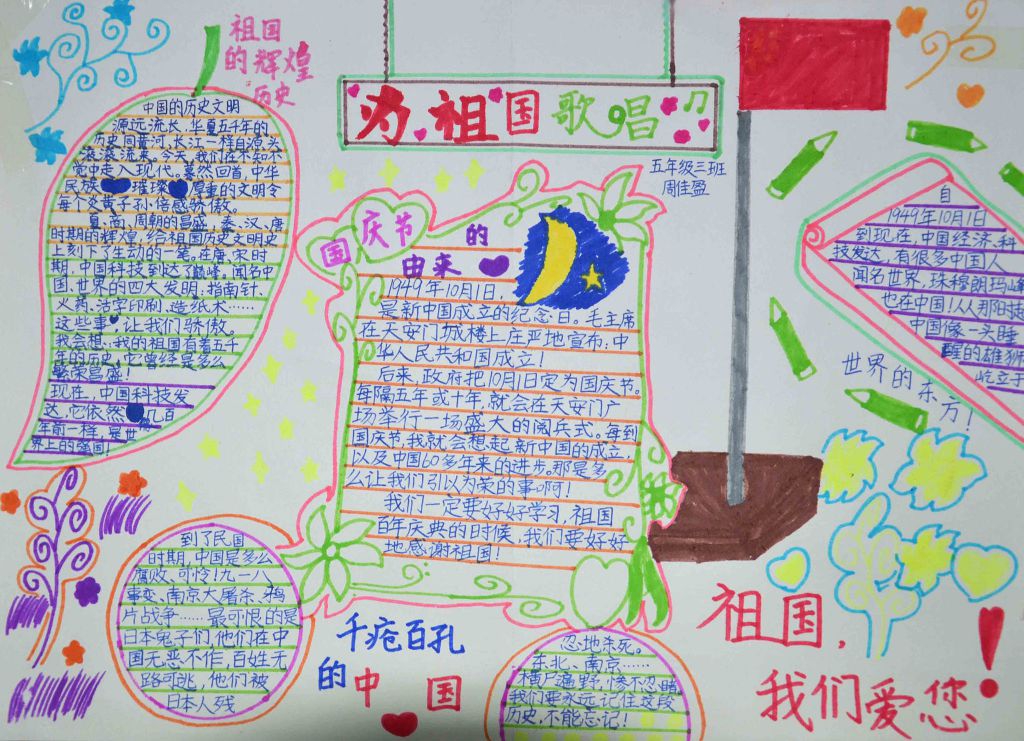 祖国
的辉煌
历史
中国的历史文明
源远流长,华夏五千年的
历史同黄河,长江一样自源头
滚滚流来。今天,我们在不知不
觉中走入现代。蓦然回首,中华
民族璀璨厚重的文明令
每个炎黄子孙倍感骄傲。
夏、商、周朝的昌盛,秦、汉、唐
时期的辉煌,给祖国历史文明史
上刻下了生动的一笔。在唐、宋时
期,中国科技到达了巅峰。闻名中
国、世界的四大发明,指南针、
火药、活字印刷、造纸术……
这些事让我们骄傲。
我会想:我的祖国有着五千
年的历史,它曾经是多么
繁荣昌盛!
现在,中国科技发
达,它依然像几百
年前一样,是世
界上的强国!
为祖国歌唱
五年级三班
周佳盈
国庆节的
由来
1949年10月1日,
是新中国成立的纪念日。毛主席
在天安门城楼上庄严地宣布:中
华人民共和国成立!
后来,政府把10月1日定为国庆节。
每隔五年或十年,就会在天安门广
场举行一场盛大的阅兵式。每到
国庆节,我就会想起新中国的成立,
以及中国60多年来的进步。那是多
么让我们引以为荣的事啊!
我们一定要好好学习,祖国
百年庆典的时候,我们要好好
地感谢祖国!
自
1949年10月1日
到现在,中国经济、科
技发达,有很多中国人
闻名世界,珠穆朗玛峰
也在中国!从那时起
中国像一头睡
醒的雄狮
屹立于
世界的东
方!
到了民国
时期,中国是多么
腐败、可怜!九一八
事变、南京大屠杀、鸦
片战争……最可恨的是
日本鬼子们,他们在中
国无恶不作,百姓无
路可逃,他们被
日本人残
千疮百孔
的中国
忍地杀死。
东北、南京……
横尸遍野,惨不忍睹,
我们要永远记住这段
历史,不能忘记!
祖国,
我们爱您!